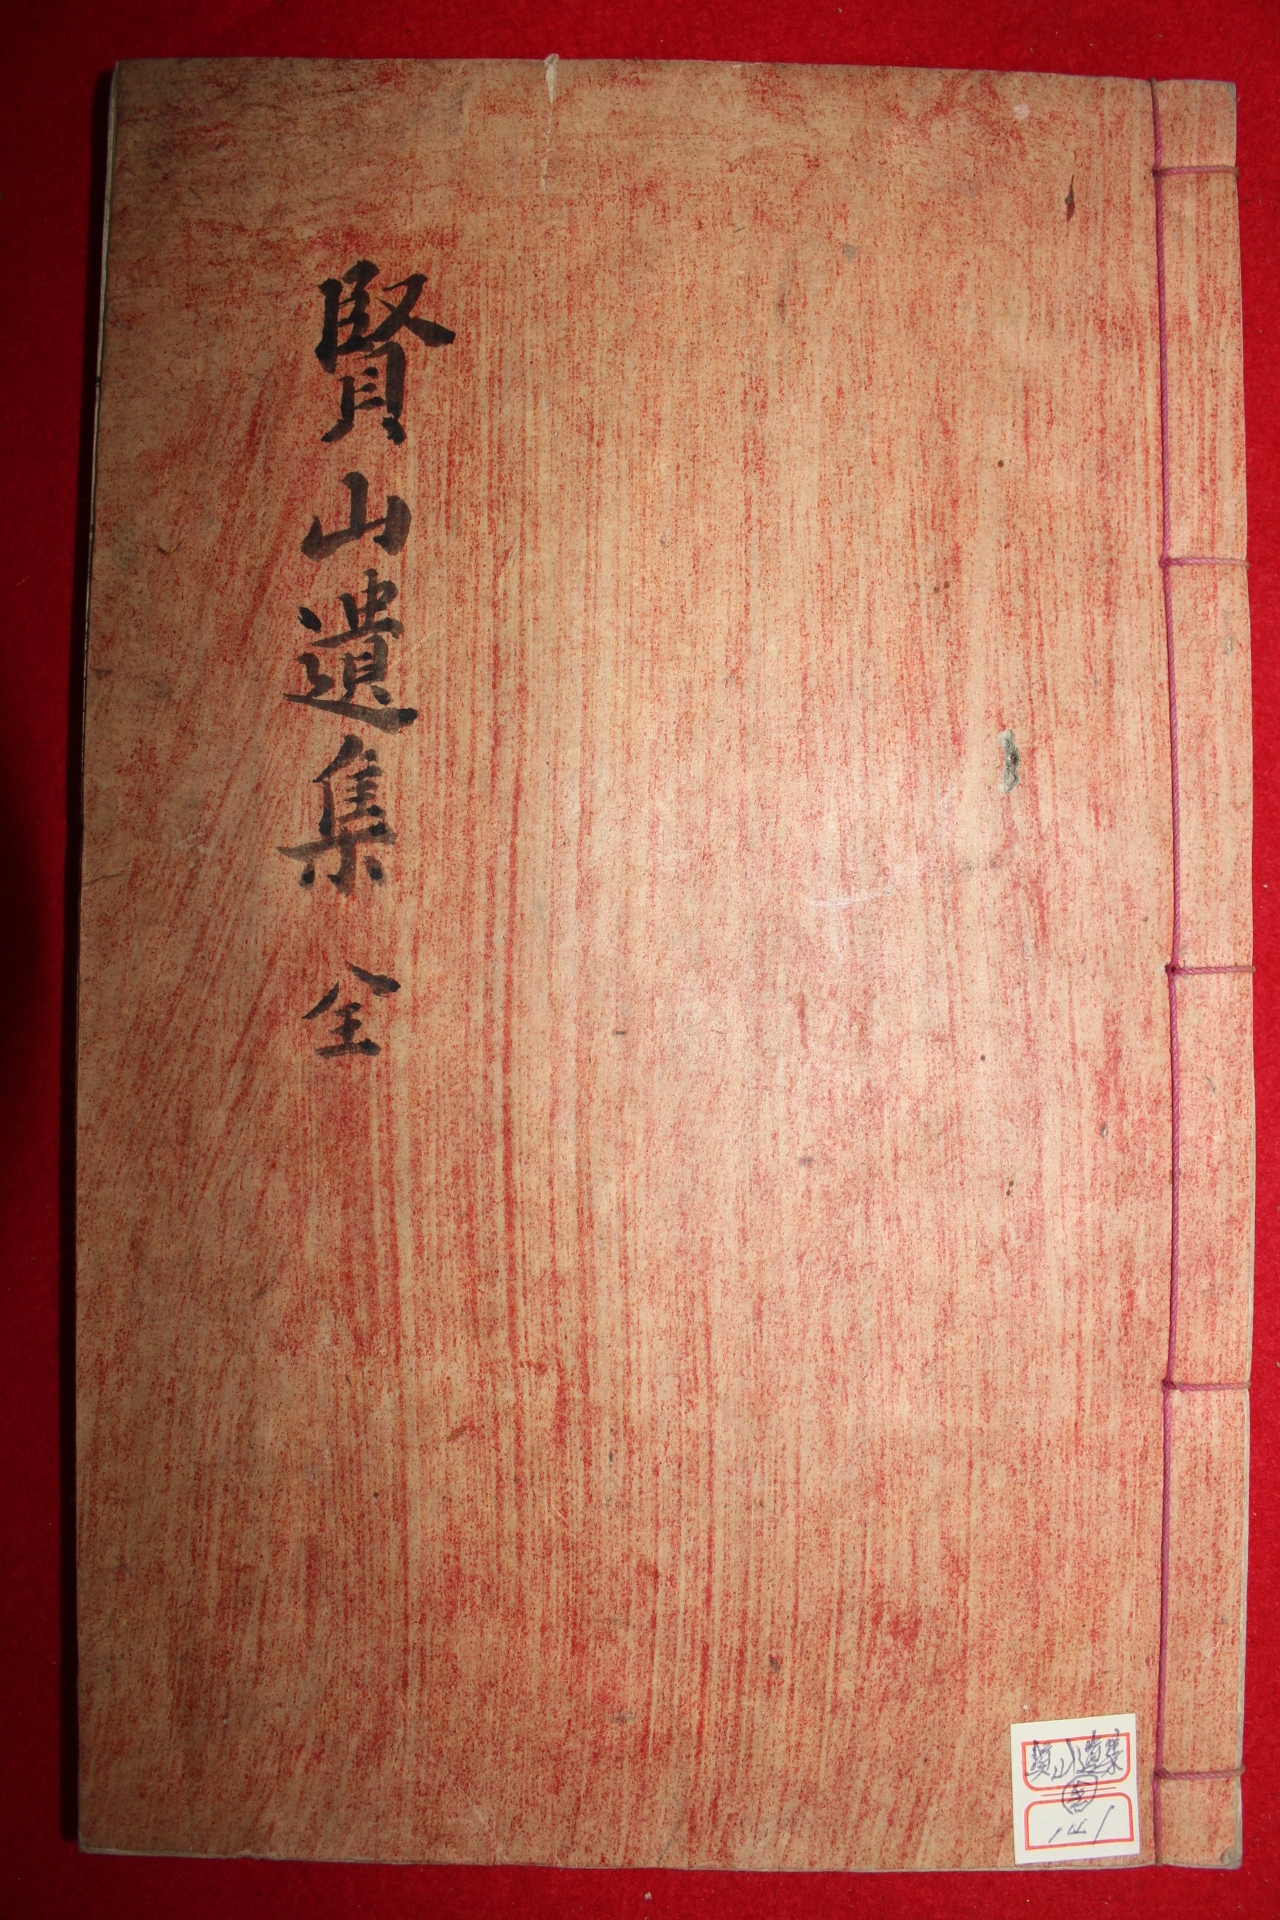 賢山遺集 全
賢山遺集
全